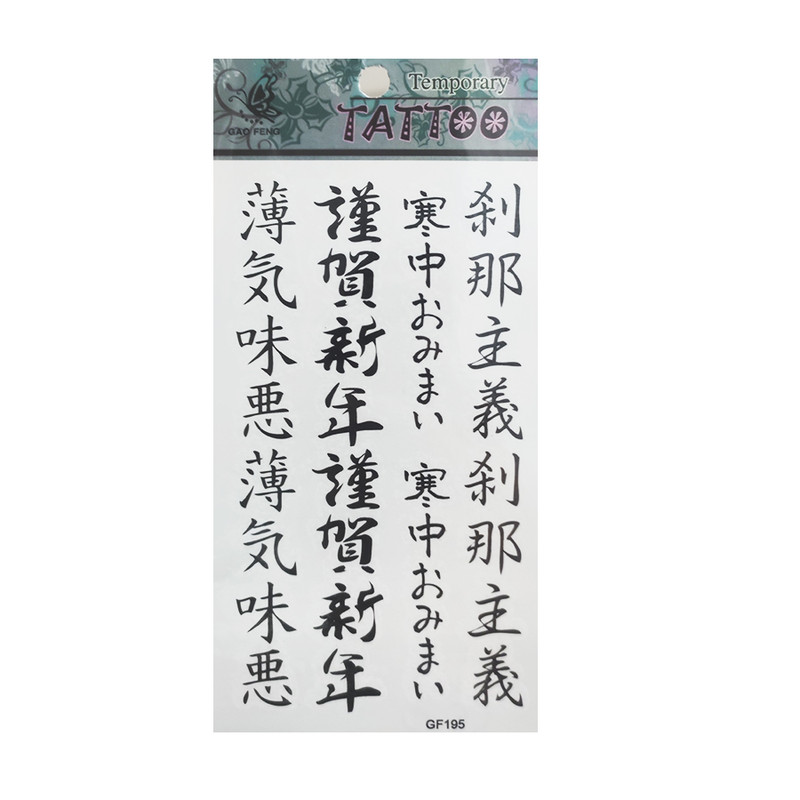 Temporary
TATTOO
GAO FENG
刹那主義刹那主義
寒中おみまい寒中おみまい
謹賀新年謹賀新年
薄気味悪薄気味悪
GF195